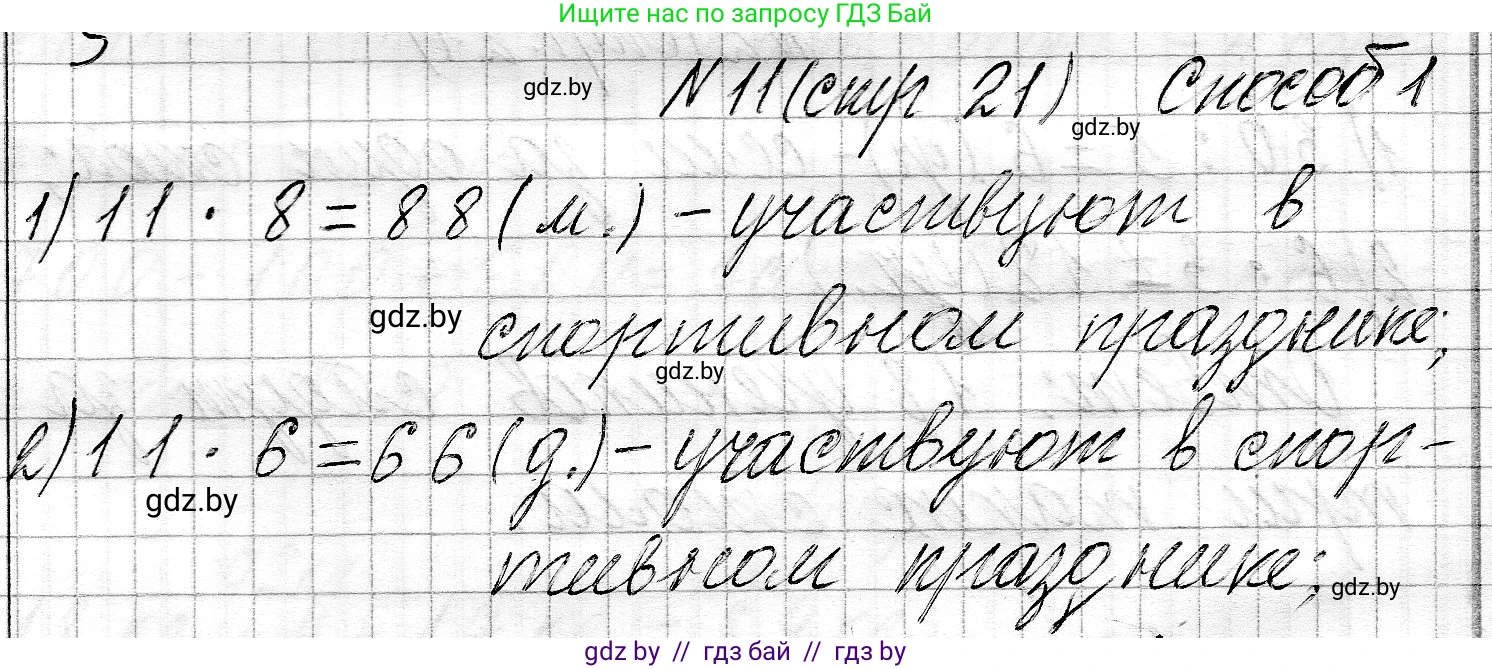 Ищите нас по запросу ГДЗ Бай
gdz.by N 11 (стр 21) Способ 1
gdz.by
1) 11 · 8 = 88 (м.) - участвуют в
gdz.by спортивном празднике;
gdz.by
2) 11 · 6 = 66 (д.) - участвуют в спор-
gdz.by
тивном празднике; gdz.by
gdz.by // гдз бай // гдз by